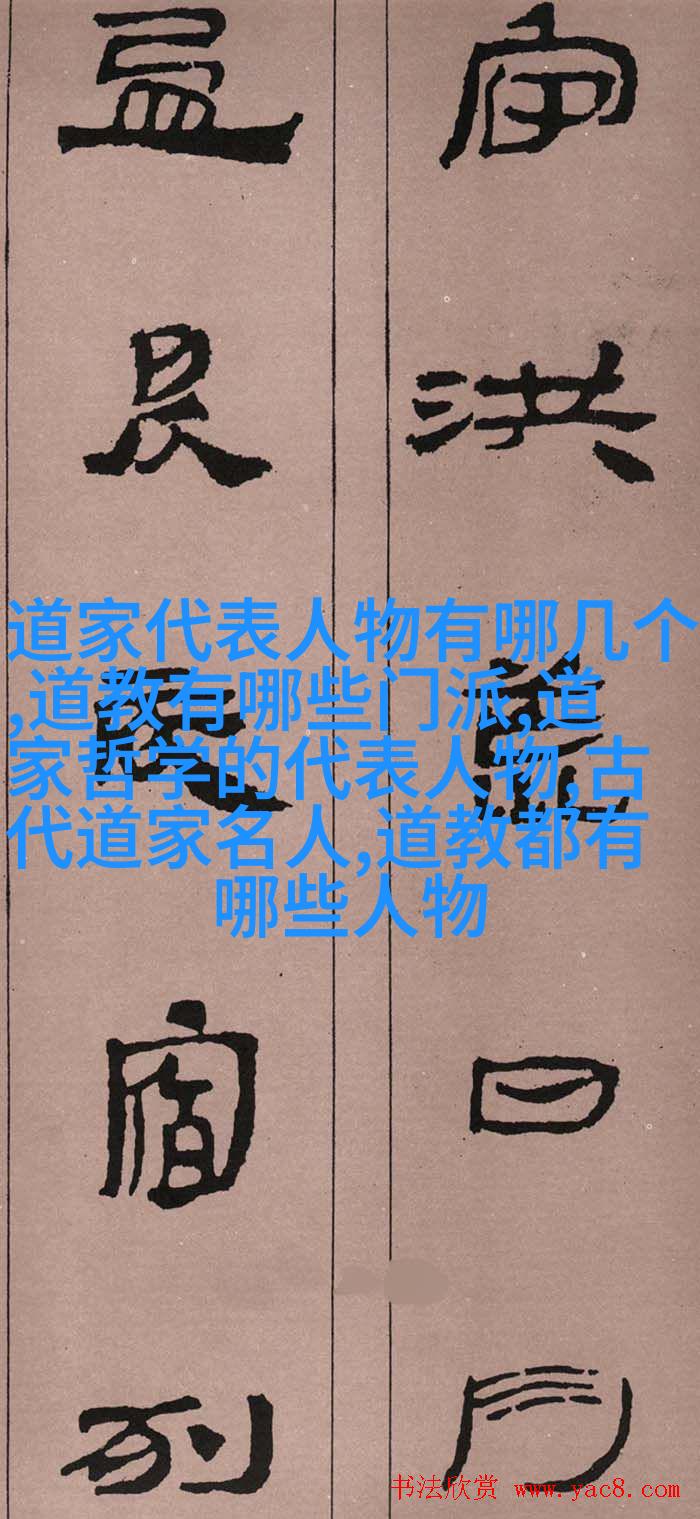 宇洪荒日月
盈昃辰宿列
道家代表人物有哪几个
,道教有哪些门派,道
家哲学的代表人物,古
代道家名人,道教都有
哪些人物
书法欣赏 www.yac8.com